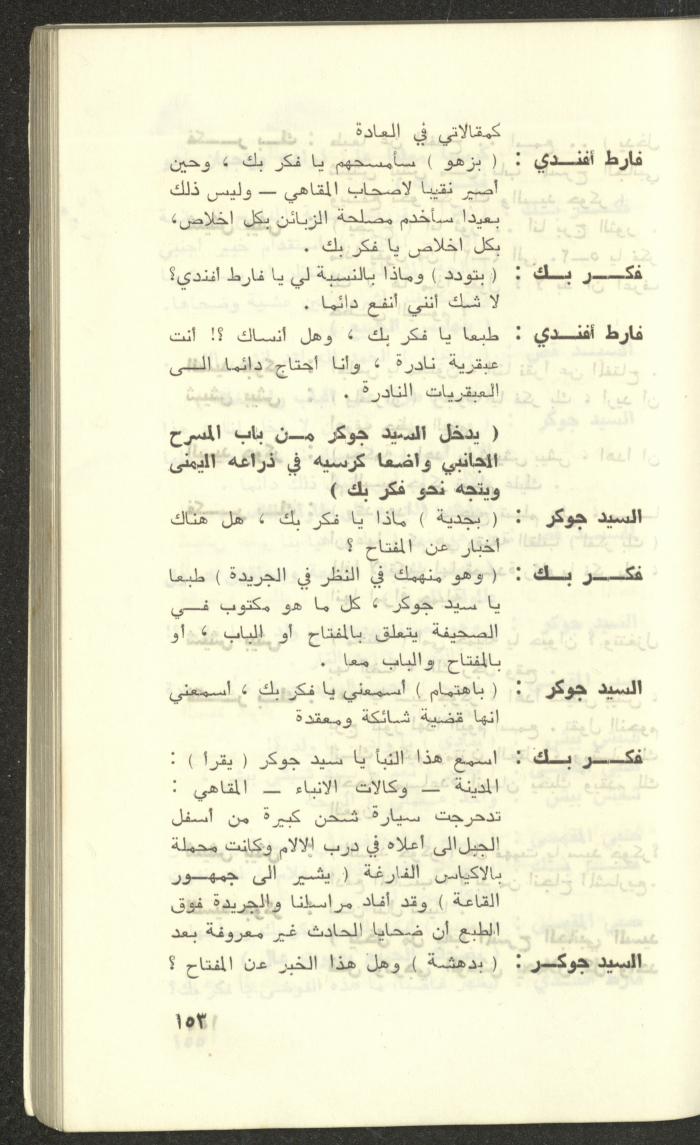 كمقالاتي في العادة
فارط أفنـــدي : ( بزهو ) سأمسحهم يا فكر بك ، وحين
أصير نقيبا لاصحاب المقاهي — وليس ذلك
بعيدا سأخدم مصلحة الزبائن بكل اخلاص،
بكل اخلاص يا فكر بك .
فكـــــر بـــك : ( بتودد ) وماذا بالنسبة لي يا فارط أفندي؟
لا شك أنني أنفع دائما .
فارط أفنـــدي : طبعا يا فكر بك ، وهل أنساك ؟! أنت
عبقرية نادرة ، وأنا أحتاج دائما الـــى
العبقريات النادرة .
( يدخل السيد جوكر مـــن باب المسرح
الجانبي واضعا كرسيه في ذراعه اليمنى
ويتجه نحو فكر بك )
السيد جوكر : ( بجدية ) ماذا يا فكر بك ، هل هناك
أخبار عن المفتاح ؟
فكـــــر بـــك : ( وهو منهمك في النظر في الجريدة ) طبعا
يا سيد جوكر ، كل ما هو مكتوب فـــي
الصحيفة يتعلق بالمفتاح أو الباب ، أو
بالمفتاح والباب معا .
السيد جوكر : ( باهتمام ) أسمعني يا فكر بك ، أسمعني
انها قضية شائكة ومعقدة
فكـــــر بـــك : اسمع هذا النبأ يا سيد جوكر ( يقرأ ) :
المدينة — وكالات الانباء — المقاهي :
تدحرجت سيارة شحن كبيرة من أسفل
الجبل الى أعلاه في درب الالام وكانت محملة
بالاكياس الفارغة ( يشير الى جمهـــور
القاعة ) وقد أفاد مراسلنا والجريدة فوق
الطبع أن ضحايا الحادث غير معروفة بعد
السيد جوكـــر : ( بدهشة ) وهل هذا الخبر عن المفتاح ؟
١٥٣